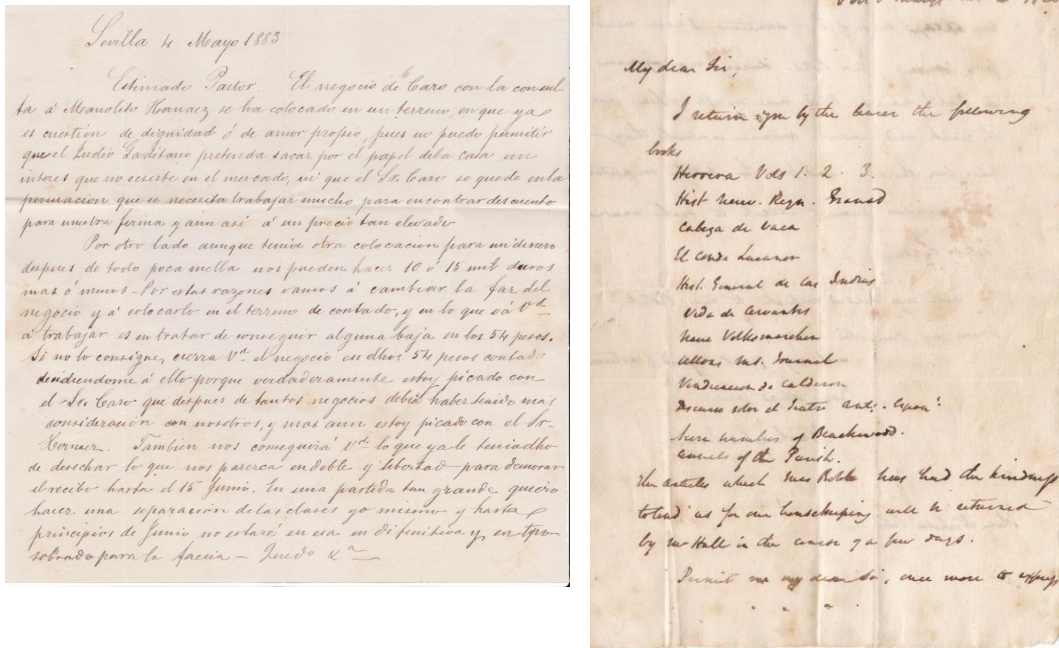 Sevilla 4 Mayo 1883
Estimado Pastor. El negocio de Caro con la consul
ta á Manolito Hernaez se ha colocado en un terreno, en que ya
es cuestion de dignidad ó de amor propio, pues no puedo permitir
que el Indio Gaditano pretenda sacar por el papel dela casa un
interes que no ecsiste en el mercado, ni que el Sr. Caro se quede enla
que se necesita trabajar mucho para encontrar descuento
para nuestra firma y aun asi á un precio tan elevado
Por otro lado aunque tenia otra colocacion para mi dinero
despues de todo poca mella nos pueden hacer 10 ó 15 mil duros
mas ó menos - Por estas razones vamos á cambiar la faz del
negocio y á colocarlo en el terreno de contado, y en lo que vá Vd.
á trabajar es en tratar de conseguir alguna baja en los 54 pesos.
Si no lo consigue, cierra Vd. el negocio en dhos 54 pesos contado
decidiendome á ello porque verdaderamente estoy picado con
el Sr. Caro que despues de tantos negocios debia haber tenido mas
consideracion con nosotros, y mas aun estoy picado con el Sr.
Hernaez. Tambien nos conseguirá Vd. lo que ya le tenia dho
de desechar lo que nos parezca endoble y libertad para demorar
el recibo hasta el 15 Junio. En una partida tan grande quiero
hacer una separacion de las clases yo mismo y hasta
principios de Junio no estaré en esa en difinitiva y en tpo
sobrado para la - Quedo &a
My dear Sir,
I return you by the bearer the following
books
Herrera Vols 1. 2. 3.
Hist Nuev. Reyn. Granad
Cabeza de Vaca
El Conde Lucanor
Hist. General de las Indias
Vida de Cervantes
Neue Volksmarchen
Allons Journal
Vindicacion de Calderon
Discurso sobre el Teatro Ant. Espan
numbers of Blackwood.
Annals of the Parish.
The articles which Mrs has had the kindness
to lend us for our housekeeping will be returned
by Mr Hall in the course of a few days.
Permit me my dear Sir, once more to express
" " "